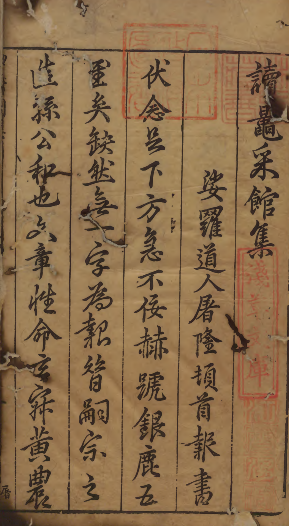 讀鼂采館集
娑羅道人屠隆頓首報書
伏念足下方急不佞赫蹏銀鹿五
至矣缺然無一字為報昔嗣宗之
造孫公和也章性命玄寂黃農
淺草文庫